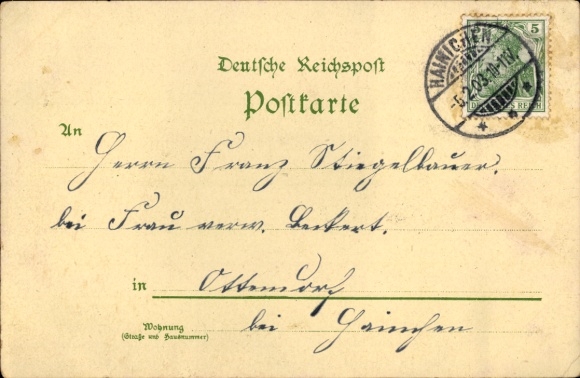 HAINICHEN
5
-5.2.03.10-11V.
DEUTSCHES REICH
Deutsche Reichspost
Postkarte
An
Herrn Franz Stiegelbauer.
bei Frau verw. Beckert.
in Ottendorf
bei Hainichen
Wohnung
(Straße und Hausnummer)